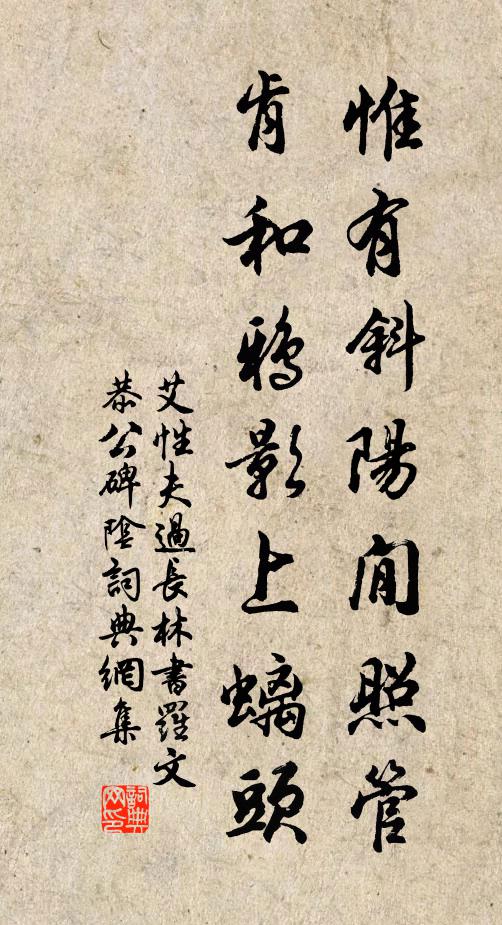 惟有斜陽閒照管
肯和鴉影上螭頭
艾性夫過長林書羅文
恭公碑陰詞典網集
詞典网印